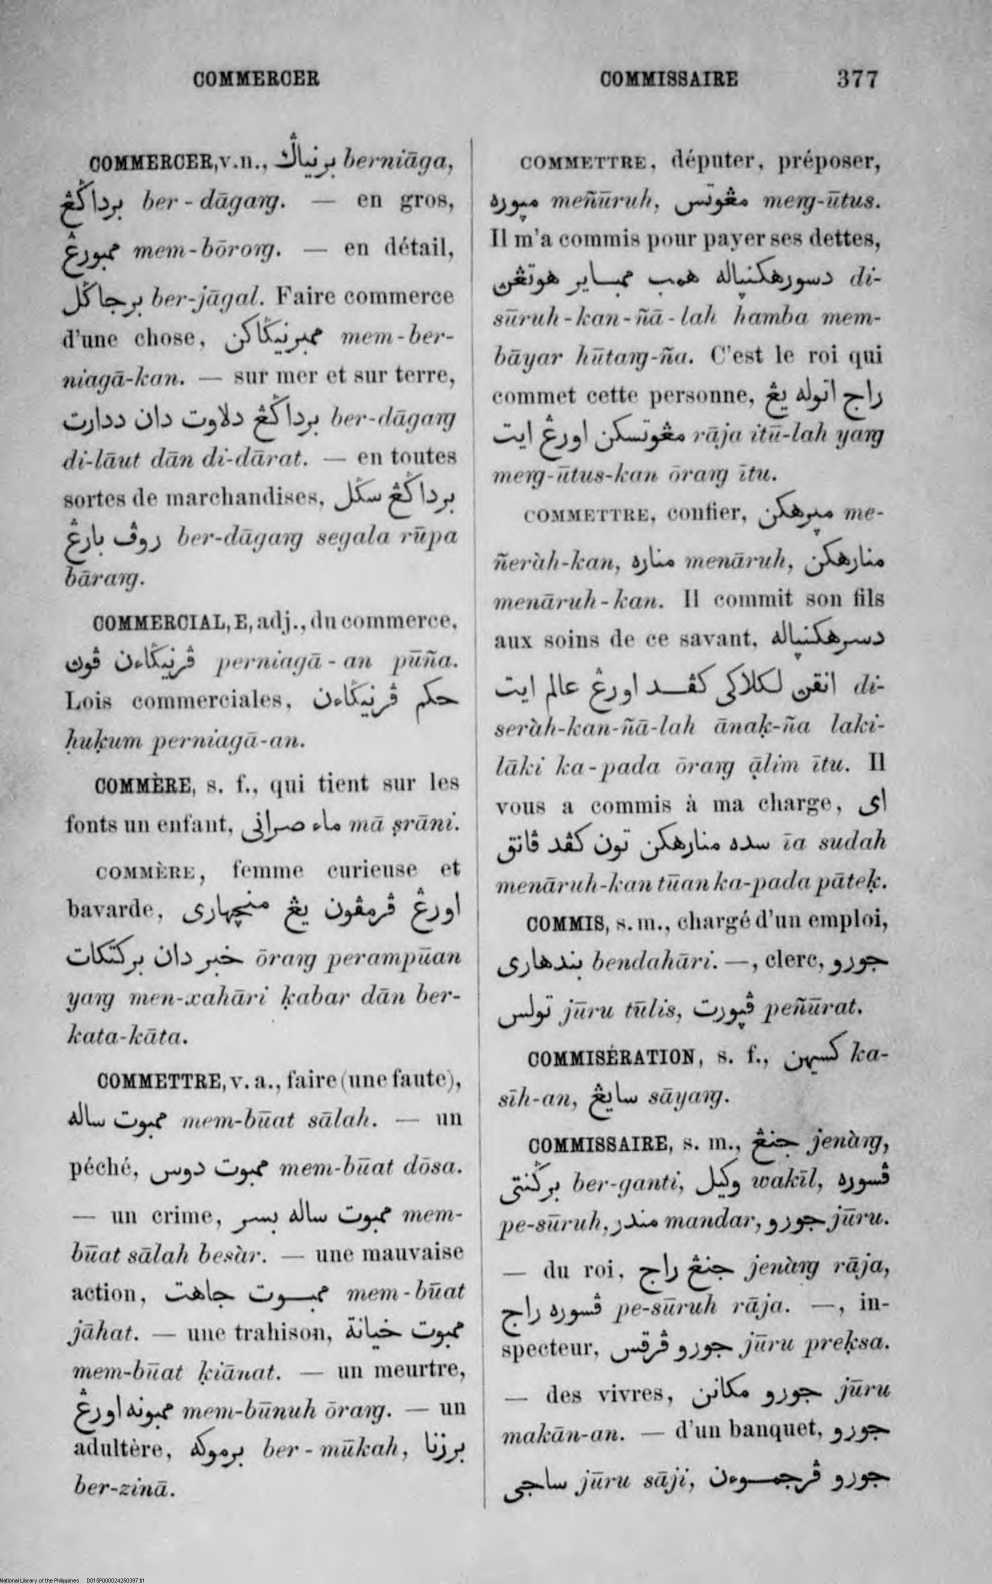 COMMERCER
COMMISSAIRE 377
COMMERCER, v. n., برنياݢ berniāga,
برداݢڠ ber-dāgaɴg. — en gros,
ممبورڠ mem-bōroɴg. — en détail,
برجاݢل ber-jāgal. Faire commerce
d'une chose, ممبرنيݢاكن mem-ber-
niagā-kan. — sur mer et sur terre,
برداݢڠ دلاوت دان ددارت ber-dāgaɴg
di-lāut dān di-dārat. — en toutes
sortes de marchandises, برداݢڠ سݢل
روڤ بارڠ ber-dāgaɴg segala rūpa
bāraɴg.
COMMERCIAL, E, adj., du commerce,
ڤرنيݢاءن ڤوڽ perniagā-an pūña.
Lois commerciales, حكم ڤرنيݢاءن
ḥuḳum perniagā-an.
COMMÈRE, s. f., qui tient sur les
fonts un enfant, ماء صراني mā ṣrāni.
COMMÈRE, femme curieuse et
bavarde, اورڠ ڤرمڤون يڠ منچهاري
خبر دان بركتكات ōraɴg perampūan
yaɴg men-xahāri ḳabar dān ber-
kata-kāta.
COMMETTRE, v. a., faire (une faute),
ممبوت ساله mem-būat sālah. — un
péché, ممبوت دوس mem-būat dōsa.
— un crime, ممبوت ساله بسر mem-
būat sālah besàr. — une mauvaise
action, ممبوت جاهت mem-būat
jāhat. — une trahison, ممبوت خيانة
mem-būat ḳiānat. — un meurtre,
ممبونه اورڠ mem-būnuh ōraɴg. — un
adultère, برموكه ber-mūkah, برزنا
ber-zinā.
COMMETTRE, députer, préposer,
مڽوره meñūruh, مڠوتس meɴg-ūtus.
Il m'a commis pour payer ses dettes,
دسورهكنڽاله همب ممباير هوتڠڽ di-
sūruh-kan-ñā-lah hamba mem-
bāyar hūtaɴg-ña. C'est le roi qui
commet cette personne, راج اتوله يڠ
مڠوتسكن اورڠ ايت rāja itū-lah yaɴg
meɴg-ūtus-kan ōraɴg ītu.
COMMETTRE, confier, مڽرهكن me-
ñeràh-kan, مناره menāruh, منارهكن
menāruh-kan. Il commit son fils
aux soins de ce savant, دسرهكنڽاله
انقڽ لكلاكي كڤد اورڠ عالم ايت di-
seràh-kan-ñā-lah ānaḳ-ña laki-
lāki ka-pada ōraɴg ạ̄lim ītu. Il
vous a commis à ma charge, اي
سده منارهكن تون كڤد ڤاتق īa sudah
menāruh-kan tūan ka-pada pāteḳ.
COMMIS, s. m., chargé d'un emploi,
بندهاري bendahāri. —, clerc, جورو
تولس jūru tūlis, ڤڽورت peñūrat.
COMMISÉRATION, s. f., كسيهن ka-
sīh-an, سايڠ sāyaɴg.
COMMISSAIRE, s. m., جنڠ jenàɴg,
برݢنتي ber-ganti, وكيل wakīl, ڤسوره
pe-sūruh, مندر mandar, جورو jūru.
— du roi, جنڠ راج jenàɴg rāja,
ڤسوره راج pe-sūruh rāja. —, in-
specteur, جورو ڤرقس jūru preḳsa.
— des vivres, جورو مكانن jūru
makān-an. — d'un banquet, جورو
ساجي jūru sāji, جورو ڤرجموءن
National Library of the Philippines